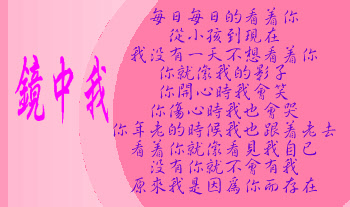 鏡中我
每日每日的看着你
從小孩到現在
我没有一天不想看着你
你就像我的影子
你開心時我會笑
你傷心時我也會哭
你年老的時候我也跟着老去
看着你就像看見我自已
没有你就不會有我
原來我是因為你而存在